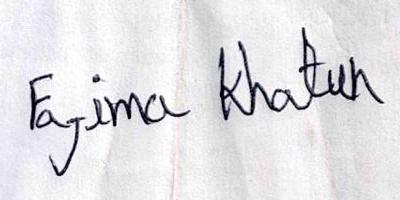 Fajima Khatun